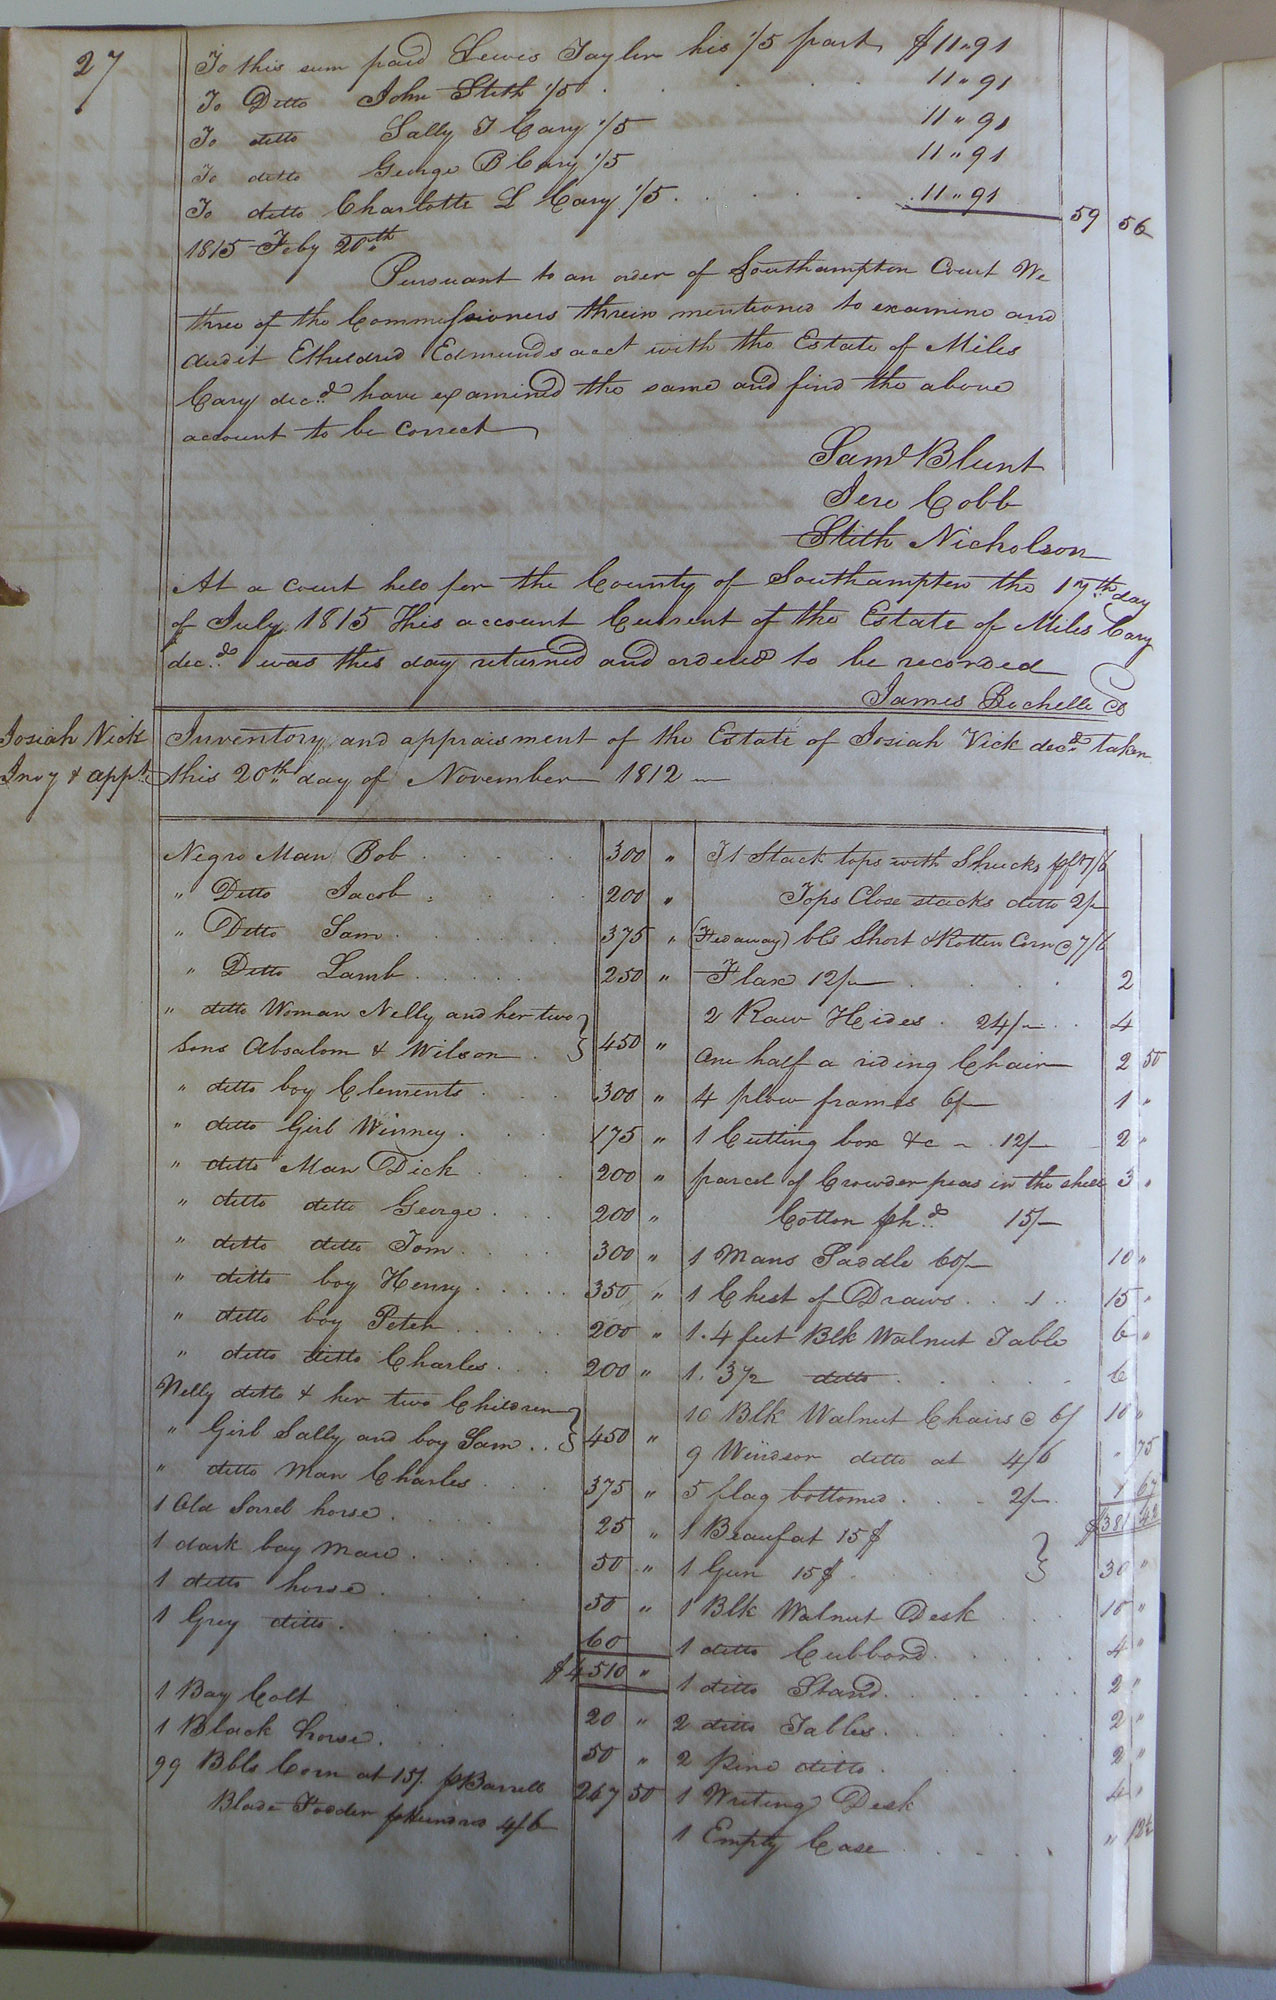 27
To this sum paid Lewis Taylor his 1/5 part $11"91
To Ditto John Stith 1/5 . . . . 11"91
To ditto Sally T Cary 1/5 11"91
To ditto George B Cary 1/5 11"91
To ditto Charlotte L Cary 1/5 . . . . 11"91 59 56
1815 Feby 20th
Pursuant to an order of Southampton Court We
three of the Commissioners threin mentioned to examine and
audit Etheldred Edmunds acct with the Estate of Miles
Cary decd have examined the same and find the above
account to be correct
Saml Blunt
Jere Cobb
Stith Nicholson
At a court held for the County of Southampton the 17th day
of July 1815 This account Current of the Estate of Miles Cary
decd was this day returned and ordered to be recorded
James Rochelle
Josiah Vick
Invy & appt
Inventory and appraisment of the Estate of Josiah Vick decd taken
this 20th day of November 1812
Negro Man Bob . . . . 300 "
" Ditto Jacob . . . 200 "
" Ditto Sam . . . . 375 "
" Ditto Lamb . . . . 250 "
" ditto Woman Nelly and her two
Sons Absalom & Wilson . 450 "
" ditto boy Clements . . . 300 "
" ditto Girl Winney . . . 175 "
" ditto Man Dick . . . 200 "
" ditto ditto George . . . 200 "
" ditto ditto Tom . . . 300 "
" ditto boy Henry . . . . . 350 "
" ditto boy Peter . . . . 200 "
" ditto ditto Charles . . . 200 "
Nelly ditto & her two Children
" Girl Sally and boy Sam . . 450 "
" ditto Man Charles . . . 375 "
1 Old Sorrel horse . . . . 25 "
1 dark bay mare . . . . 50 "
1 ditto horse . . . . 50 "
1 Grey ditto . . . . 60
$4510 "
1 Bay Colt . . . . 20 "
1 Black horse . . . 50 "
99 Bbls Corn at 15/. p Barrell 247 50
Blade Fodder p Hundred 4/6
1 Stack tops with Shucks pft 7/6
Tops Close stacks ditto 2/
bls Short & Rotten Corn @ 7/6
Flax 12/ . . . . 2
2 Raw Hides . 24/ . . 4
One half a riding Chair 2 50
4 plow frames 6/ 1 "
1 Cutting box &c - . 12/ 2 "
parcel of Crowder peas in the shell 3 "
Cotton phd 15/
1 Mans Saddle 60/ 10 "
1 Chest of Draws . . . . 15 "
1. 4 feet Blk Walnut Table 6 "
1. 3 1/2 ditto . . . . 6
10 Blk Walnut Chairs @ 6/ 10 "
9 Windsor ditto at 4/6 " 75
5 flag bottomed . . . 2/ . 1 67
$381 42
1 Beaufat 15$
1 Gun 15$ . . . . 30 "
1 Blk Walnut Desk . . . 10 "
1 ditto Cubbord . . . . 4 "
1 ditto Stand . . . . 2 "
2 ditto Tables . . . . 2 "
2 pine ditto . . . . 2 "
1 Writing Desk 4 "
1 Empty Case . . . . " 12½